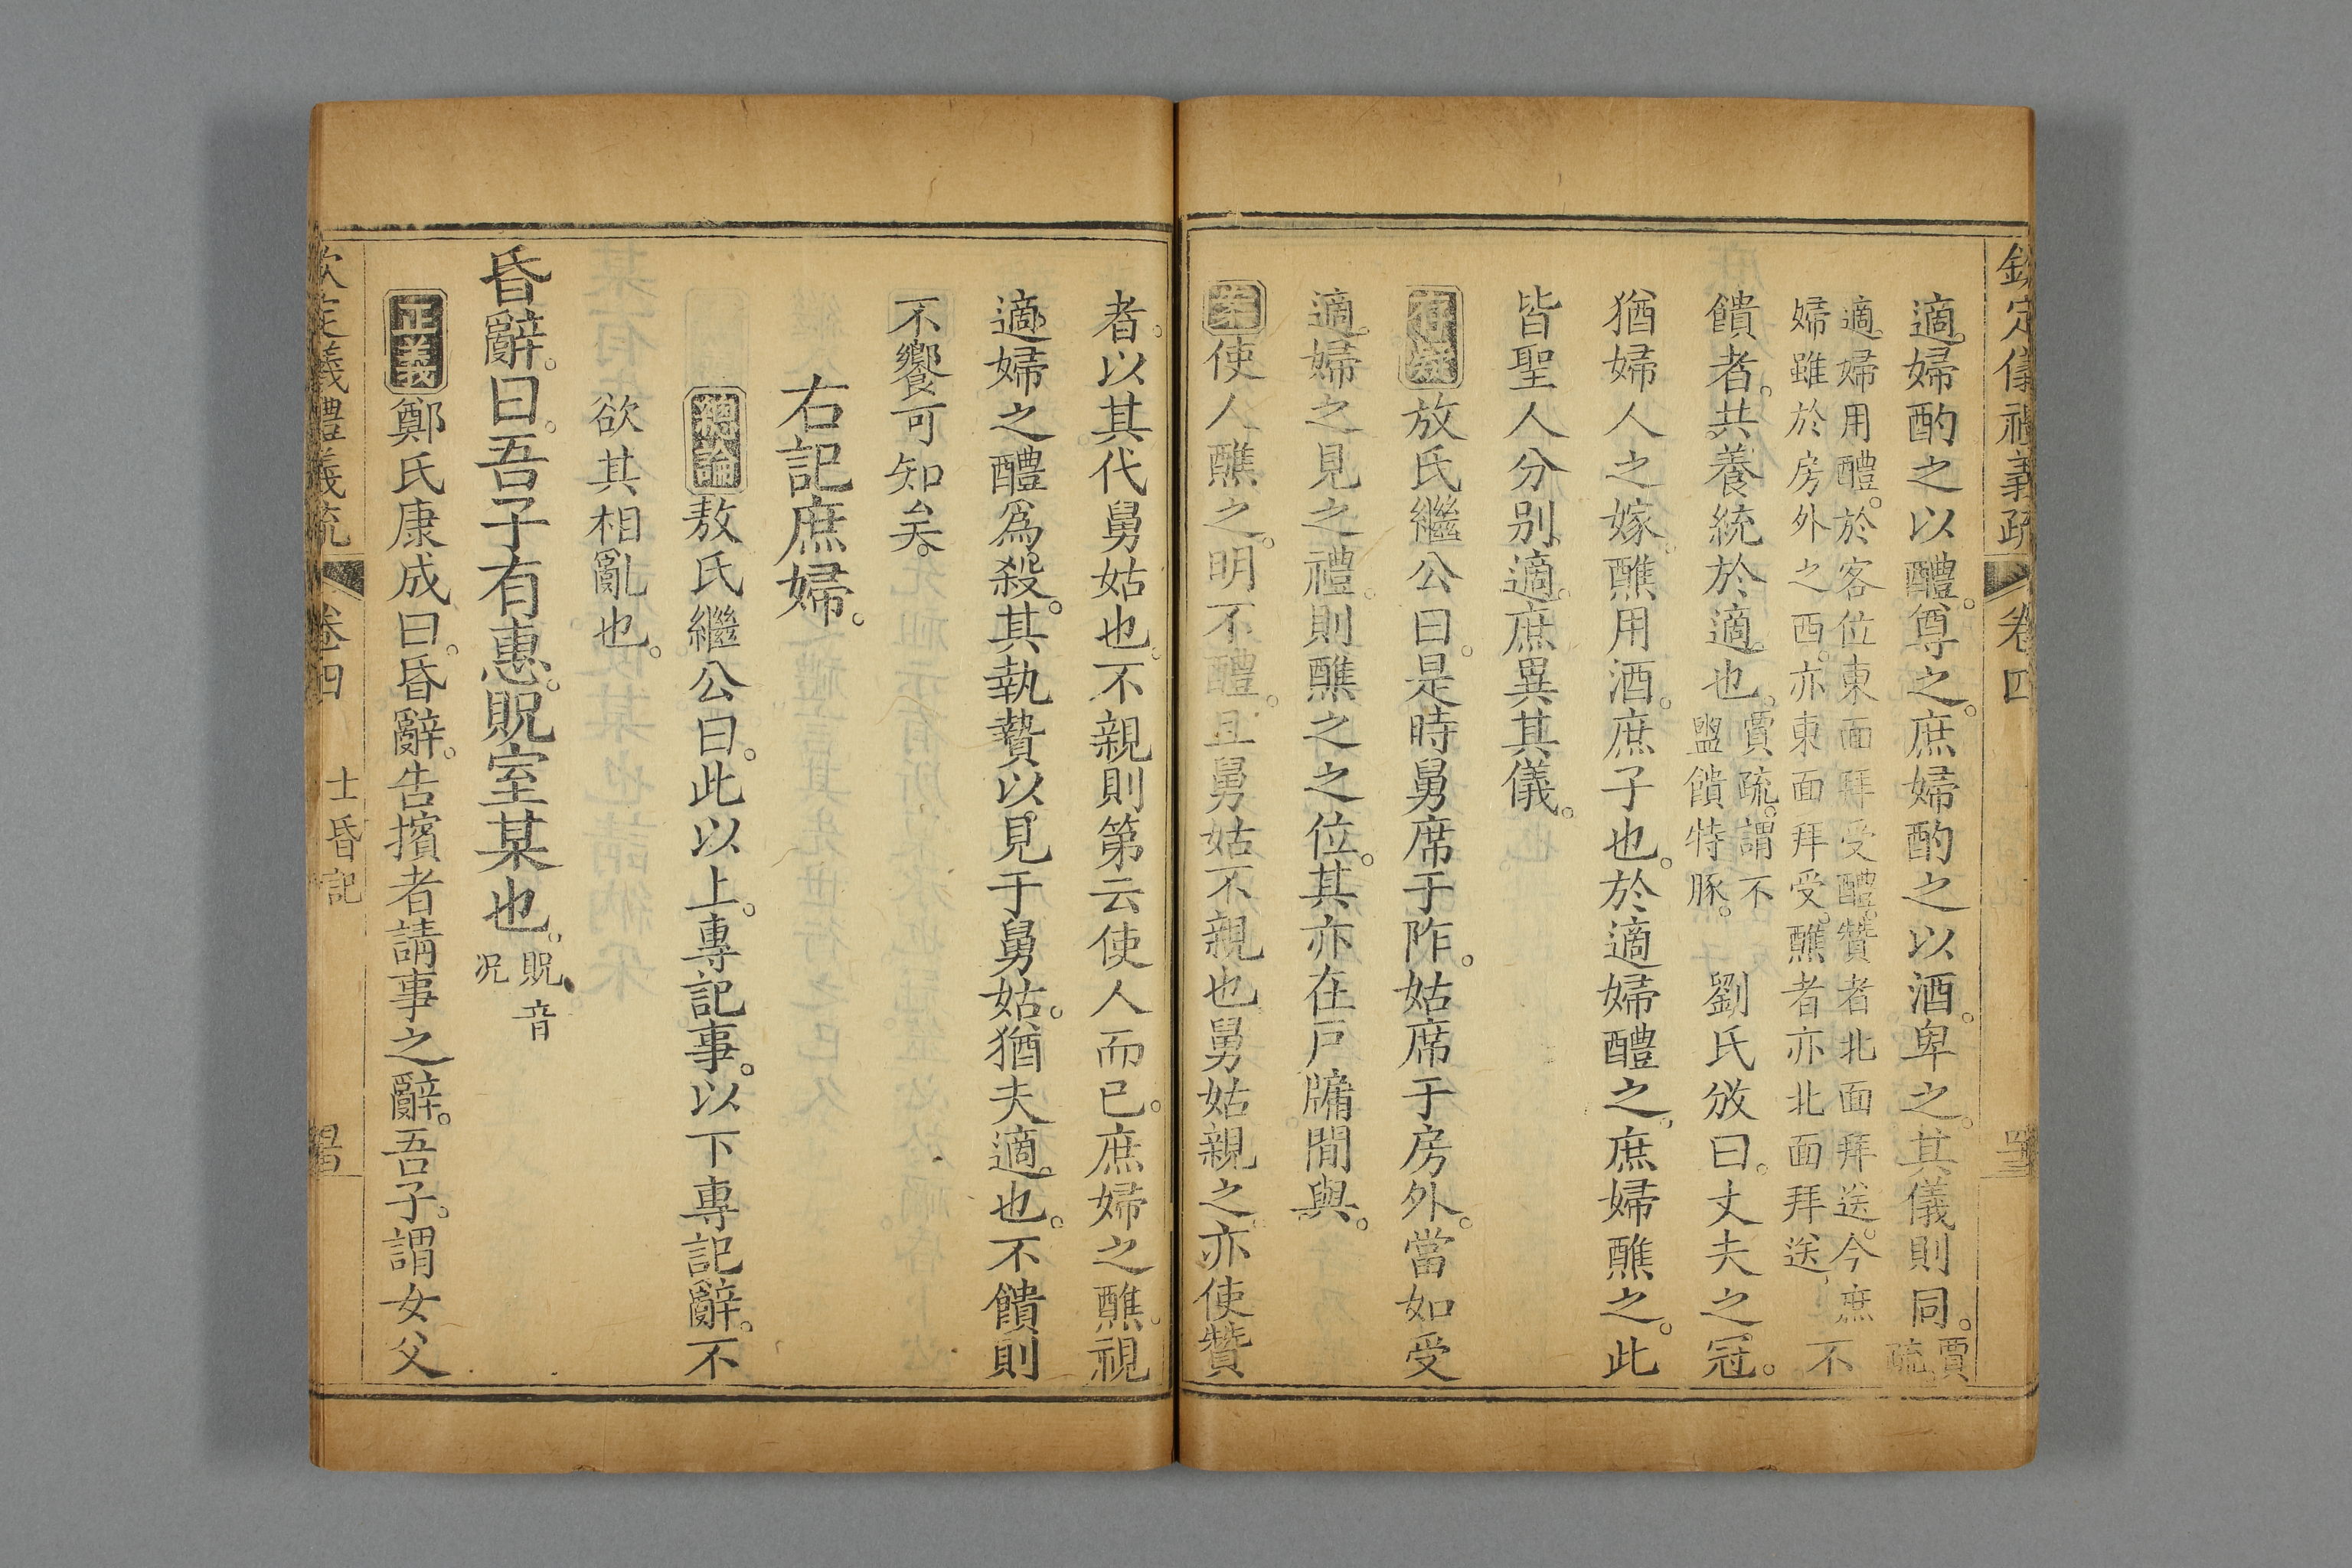 欽定儀禮義疏 卷四
適婦酌之以醴。尊之。庶婦酌之以酒。卑之。其儀則同。賈疏
適婦用醴。於客位東面拜受醴。贊者北面拜送。今庶
婦雖於房外之西。亦東面拜受。醮者亦北面拜送 不
饋者。共養統於適也。賈疏。謂不
盥饋特豚。 劉氏敞曰。丈夫之冠。
猶婦人之嫁。醮用酒。庶子也。於適婦醴之。庶婦醮之。此
皆聖人分別適庶。異其儀。
存疑 敖氏繼公曰。是時舅席于阼。姑席于房外。當如受
適婦之見之禮。則醮之之位。其亦在戶牖間與。
案 使人醮之。明不醴。且舅姑不親也。舅姑親之。亦使贊
者。以其代舅姑也。不親則第云使人而已。庶婦之醮。視
適婦之醴爲殺。其執贄以見于舅姑。猶夫適也。不饋則
不饗可知矣。
右記庶婦。
總論 敖氏繼公曰。此以上。專記事。以下專記辭。不
欲其相亂也。
昏辭。曰。吾子有惠。貺室某也。貺音
况
正義 鄭氏康成曰。昏辭。告擯者請事之辭。吾子。謂女父
欽定儀禮義疏 卷四 士昏記